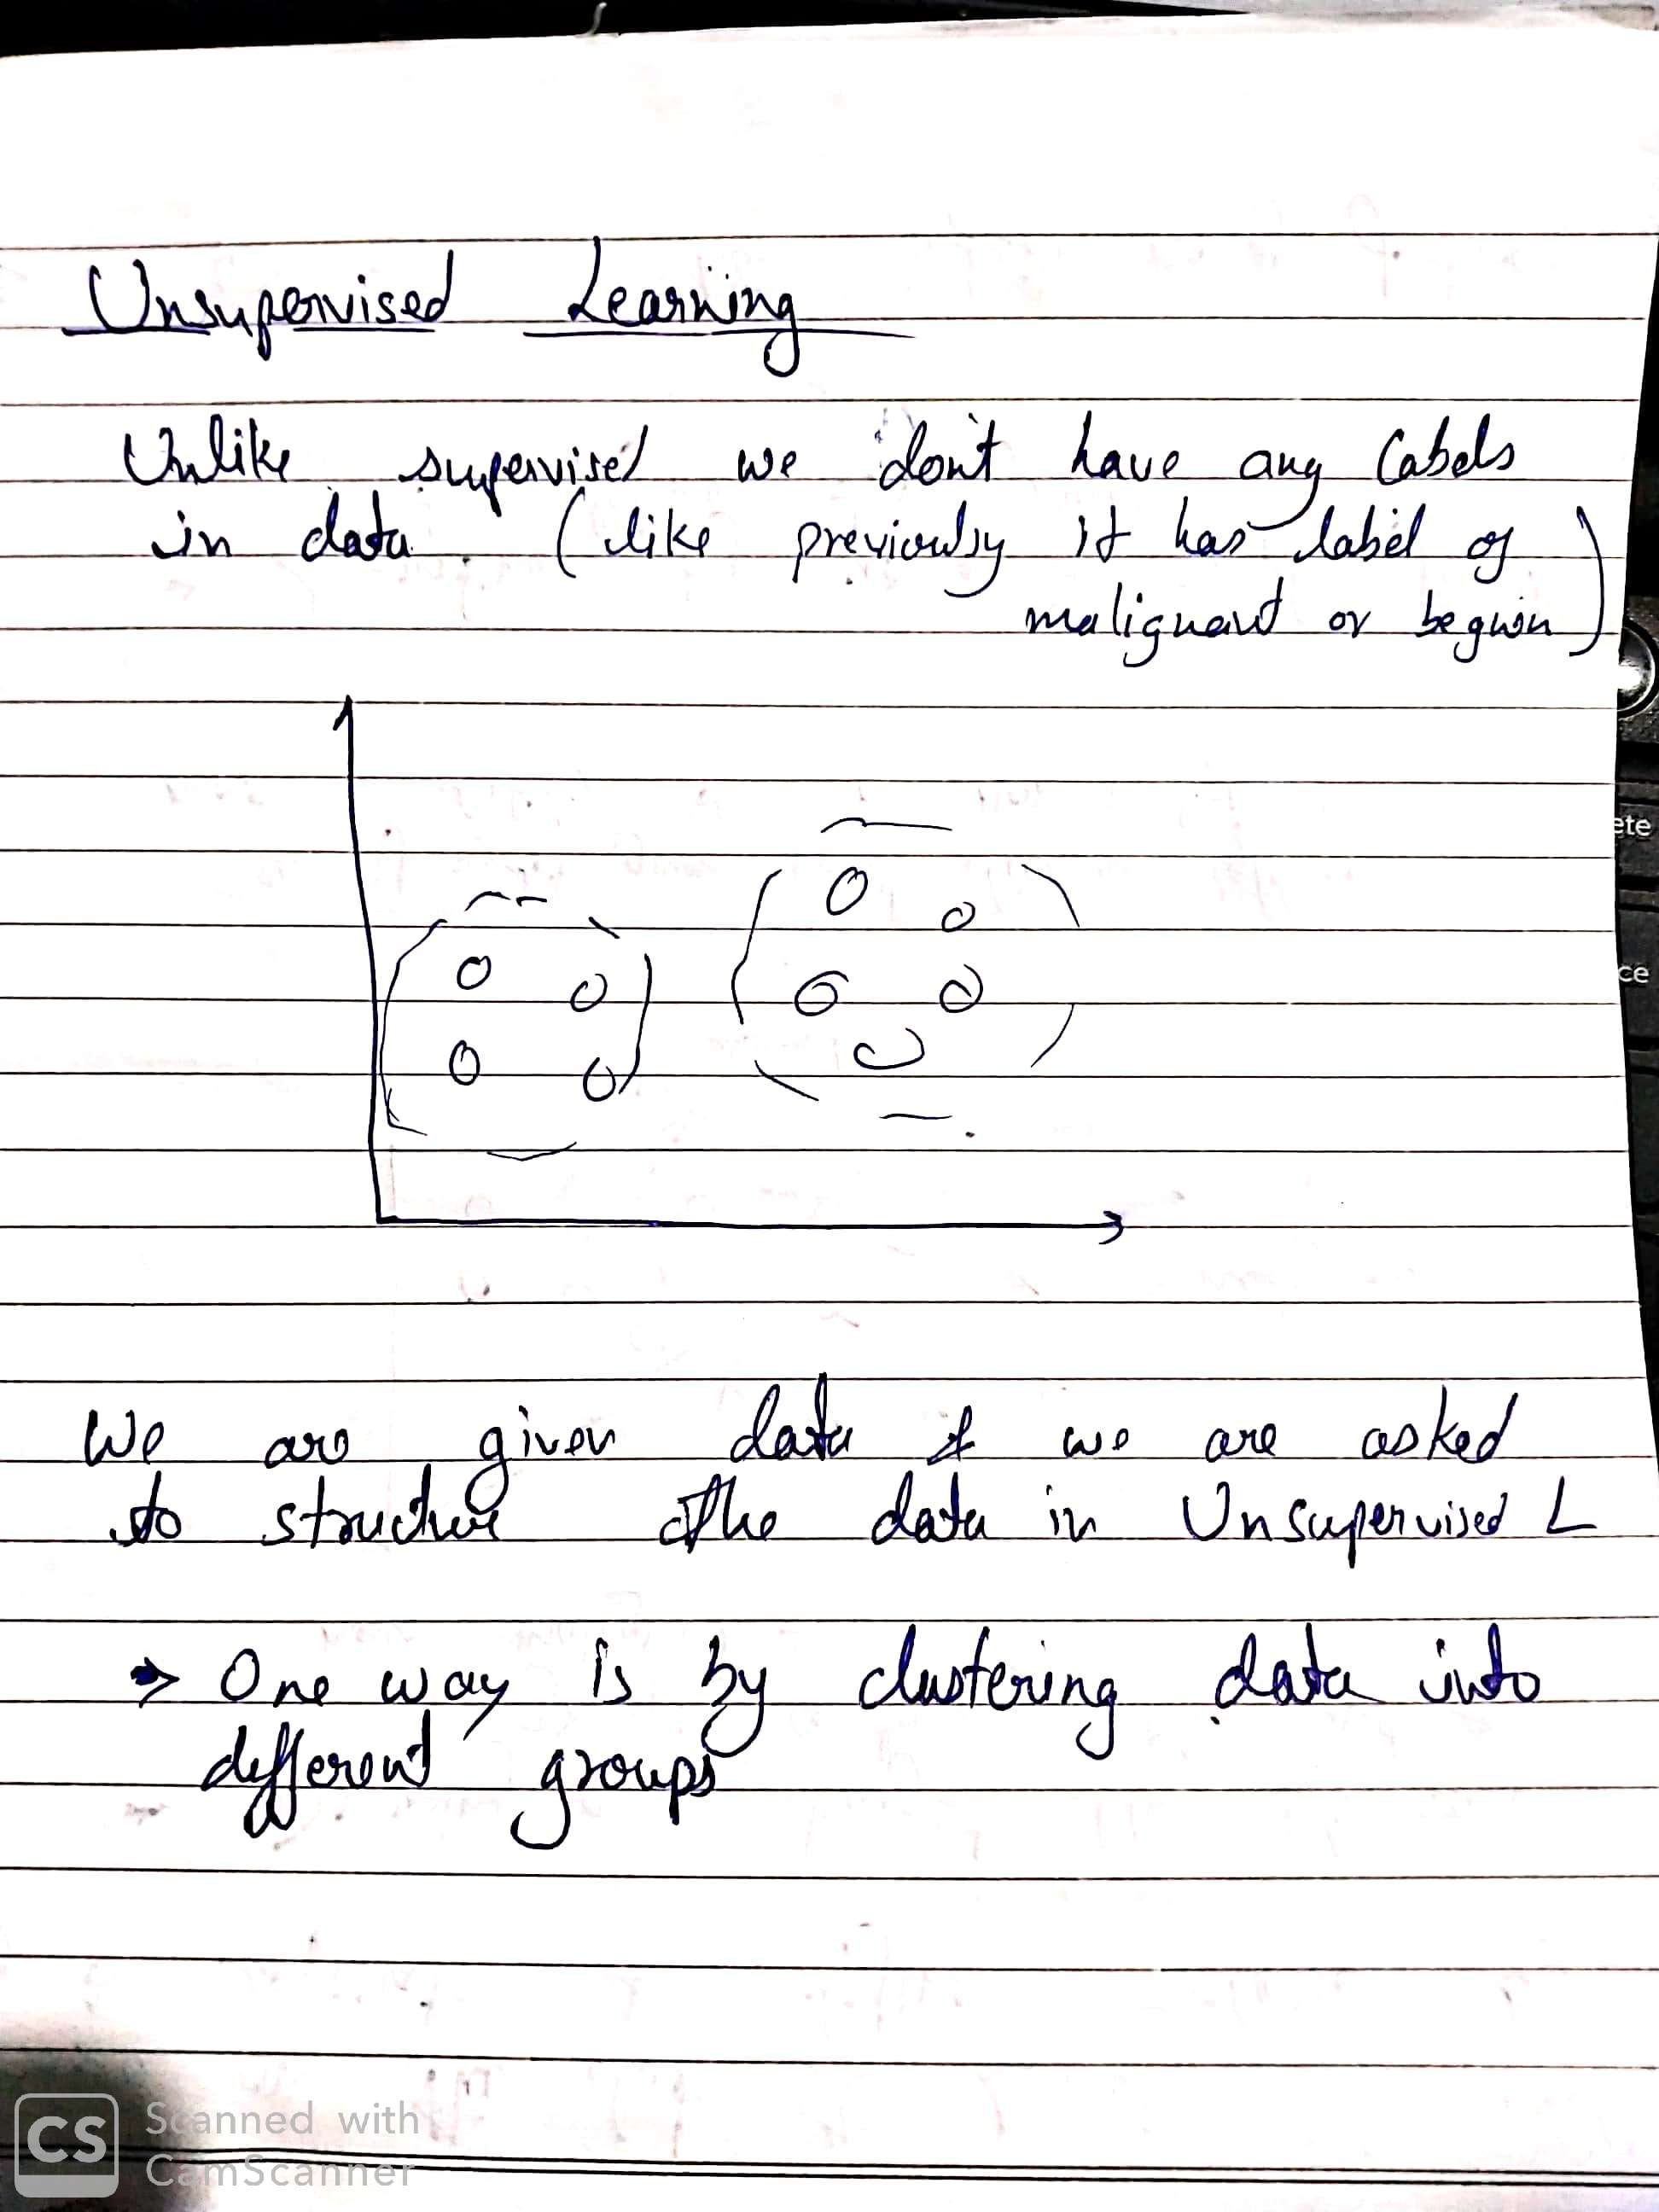 Unsupervised Learning
Unlike supervised we don't have any labels
in data (like previously it has label of
malignant or begnin)
We are given data & we are asked
to structure the data in Unsupervised L
→ One way is by clustering data into
different groups
ete
ce
CS Scanned with
CamScanner